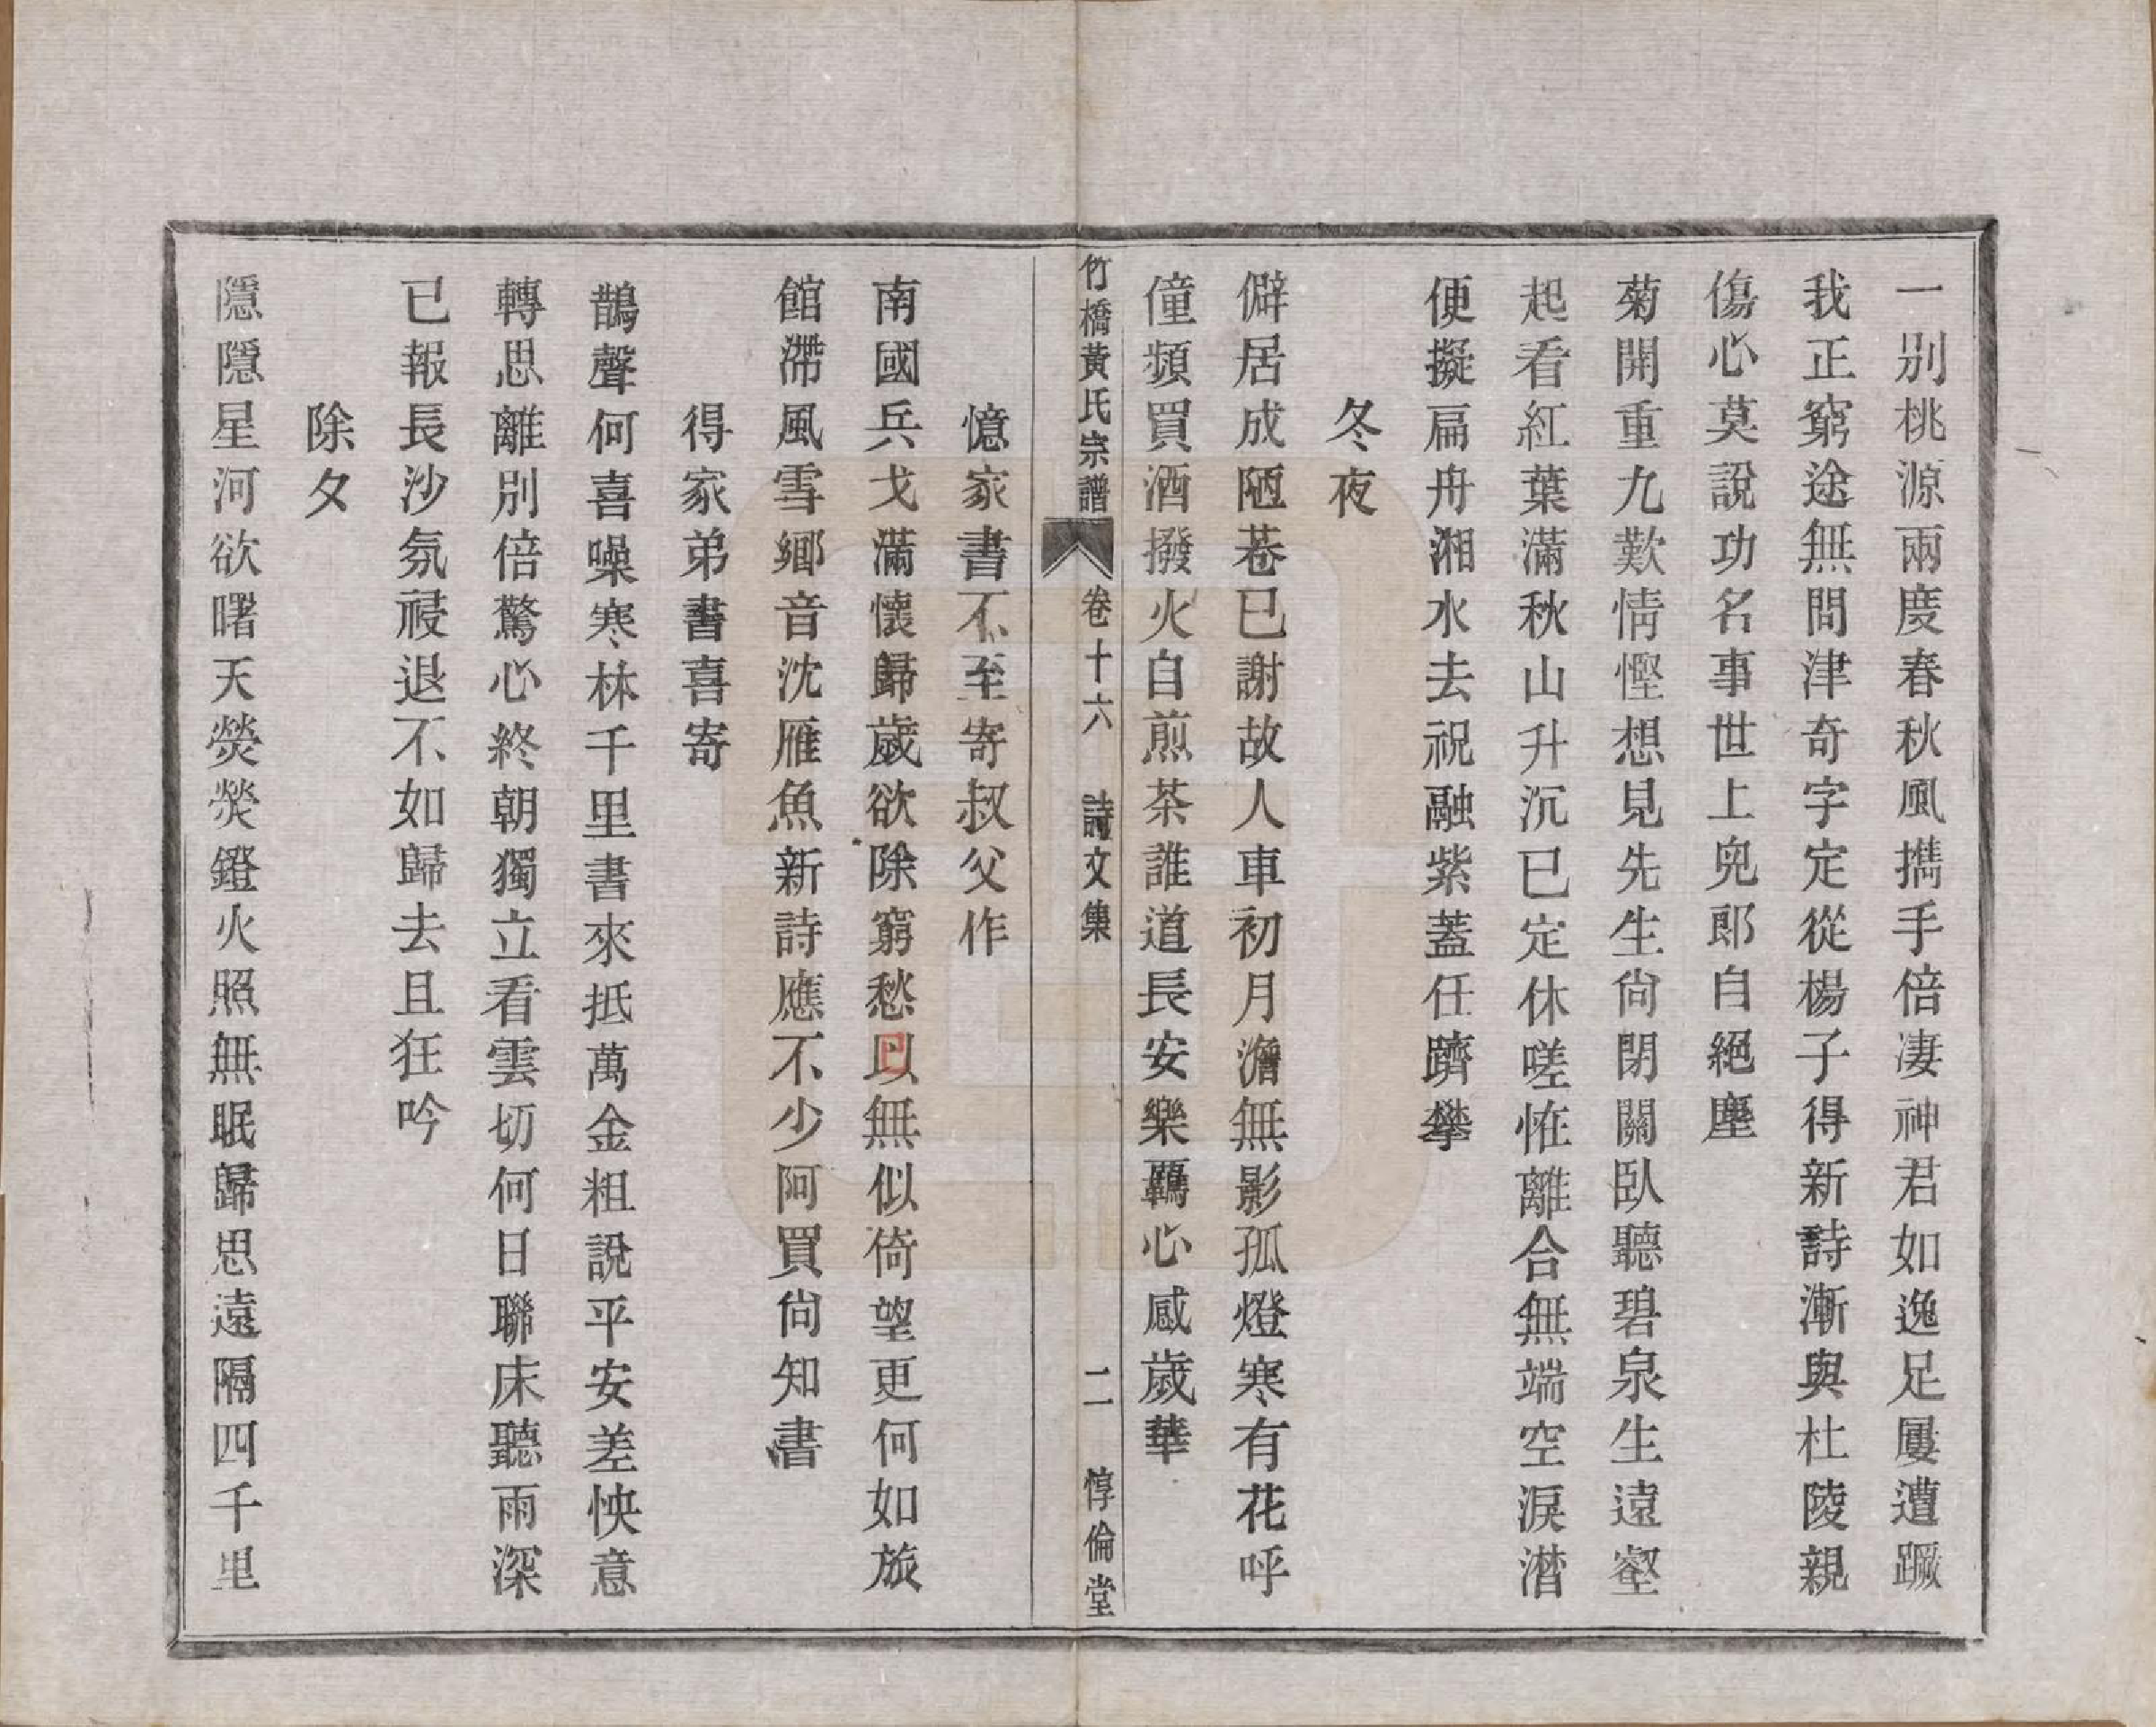 一別桃源兩度春秋風攜手倍淒神君如逸足屢遭蹶
我正窮途無問津奇字定從楊子得新詩漸與杜陵親
傷心莫說功名事世上兜郎自絕塵
菊開重九歎情慳想見先生尙閉關臥聽碧泉生遠壑
起看紅葉滿秋山升沉已定休嗟怪離合無端空淚潸
便擬扁舟湘水去祝融紫蓋任躋攀
冬夜
僻居成陋巷已謝故人車初月澹無影孤燈寒有花呼
僮頻買酒撥火自煎茶誰道長安樂羈心感歲華
竹橋黃氏宗譜 卷十六 詩文集 二 惇倫堂
憶家書不至寄叔父作
南國兵戈滿懷歸歲欲除窮愁以無似倚望更何如旅
館滯風雪鄉音沈雁魚新詩應不少阿買尙知書
得家弟書喜寄
鵲聲何喜噪寒林千里書來抵萬金粗說平安差怏意
轉思離別倍驚心終朝獨立看雲切何日聯床聽雨深
已報長沙氛祲退不如歸去且狂吟
除夕
隱隱星河欲曙天熒熒鐙火照無眠歸思遠隔四千里